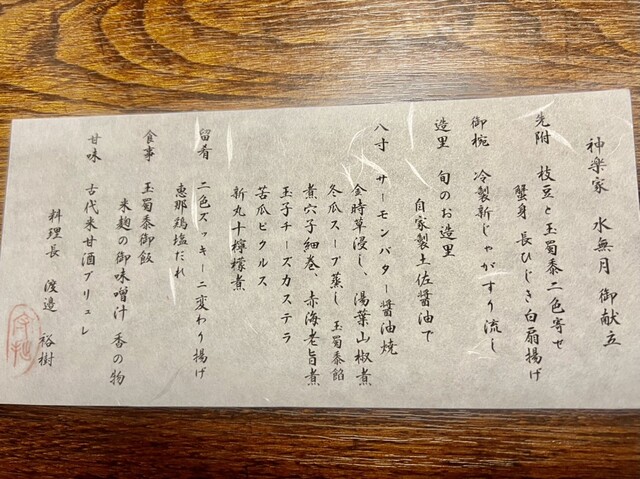 神楽家 水無月 御献立
先附 枝豆と玉蜀黍二色寄せ
蟹身 長ひじき白扇揚げ
御椀 冷製新じゃがすり流し
造里 旬のお造里
自家製土佐醤油で
八寸 サーモンバター醤油焼
金時草浸し、湯葉山椒煮
冬瓜スープ蒸し 玉蜀黍餡
煮穴子細巻、赤海老旨煮
玉子チーズカステラ
苦瓜ピクルス
新丸十檸檬煮
留肴 二色ズッキーニ変わり揚げ
恵那鶏塩だれ
食事 玉蜀黍御飯
米麹の御味噌汁 香の物
甘味 古代米甘酒ブリュレ
料理長 渡邉 裕樹